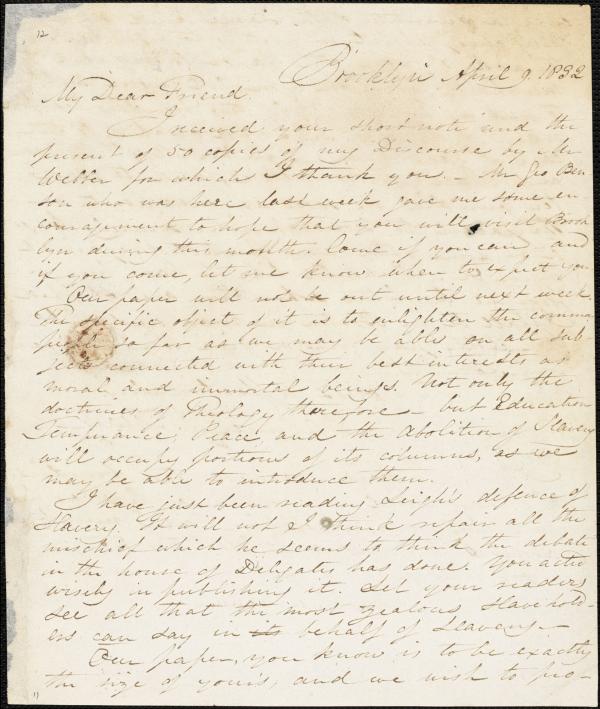 12
Brooklyn April 9. 1832
My Dear Friend.
I received your short note and the
present of 50 copies of my Discourse by Mr
Webber for which I thank you. - Mr Geo Ben
son who was here last week gave me some en
couragement to hope that you will visit Brook
lyn during this month. Come if you can - and
if you come, let me know when to expect you.
Our paper will not be out until next week.
The specific object of it is to enlighten the common
people so far as we may be able, on all sub-
jects connected with their best interests as
moral and immortal beings. Not only the
doctrines of Theology therefore - but Education
Temperance, Peace, and the Abolition of Slavery
will occupy portions of its columns, as we
may be able to introduce them.
I have just been reading Leigh's defence of
Slavery. It will not I think repair all the
mischief which he seems to think the debate
in the house of Deligates has done. You acted
wisely in publishing it. Let your readers
see all that the most zealous Slavehold-
ers can say in its behalf of Slavery. -
Our paper, you know is to be exactly
the size of yours, and we wish to pro-
11